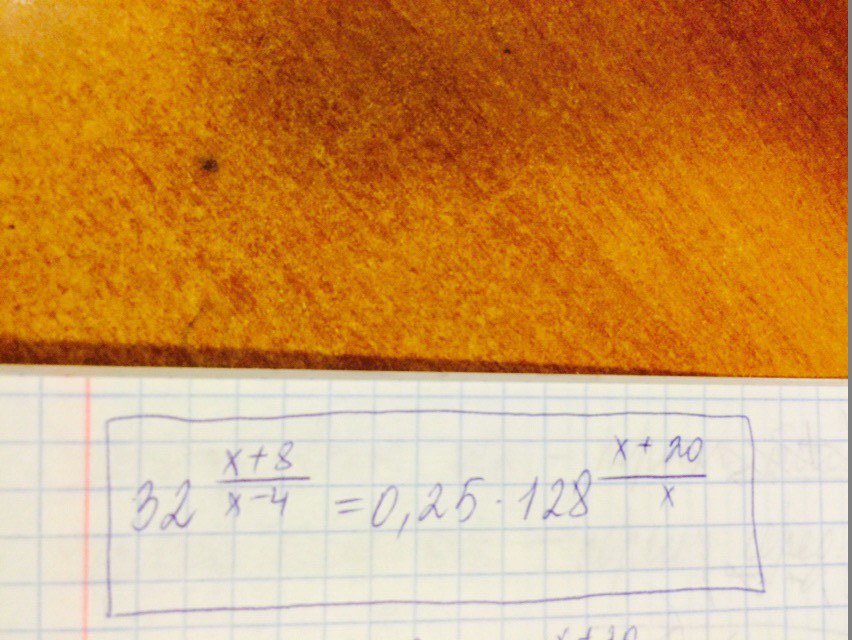 32^((x+8)/(x-4)) = 0,25 · 128^((x+20)/x)